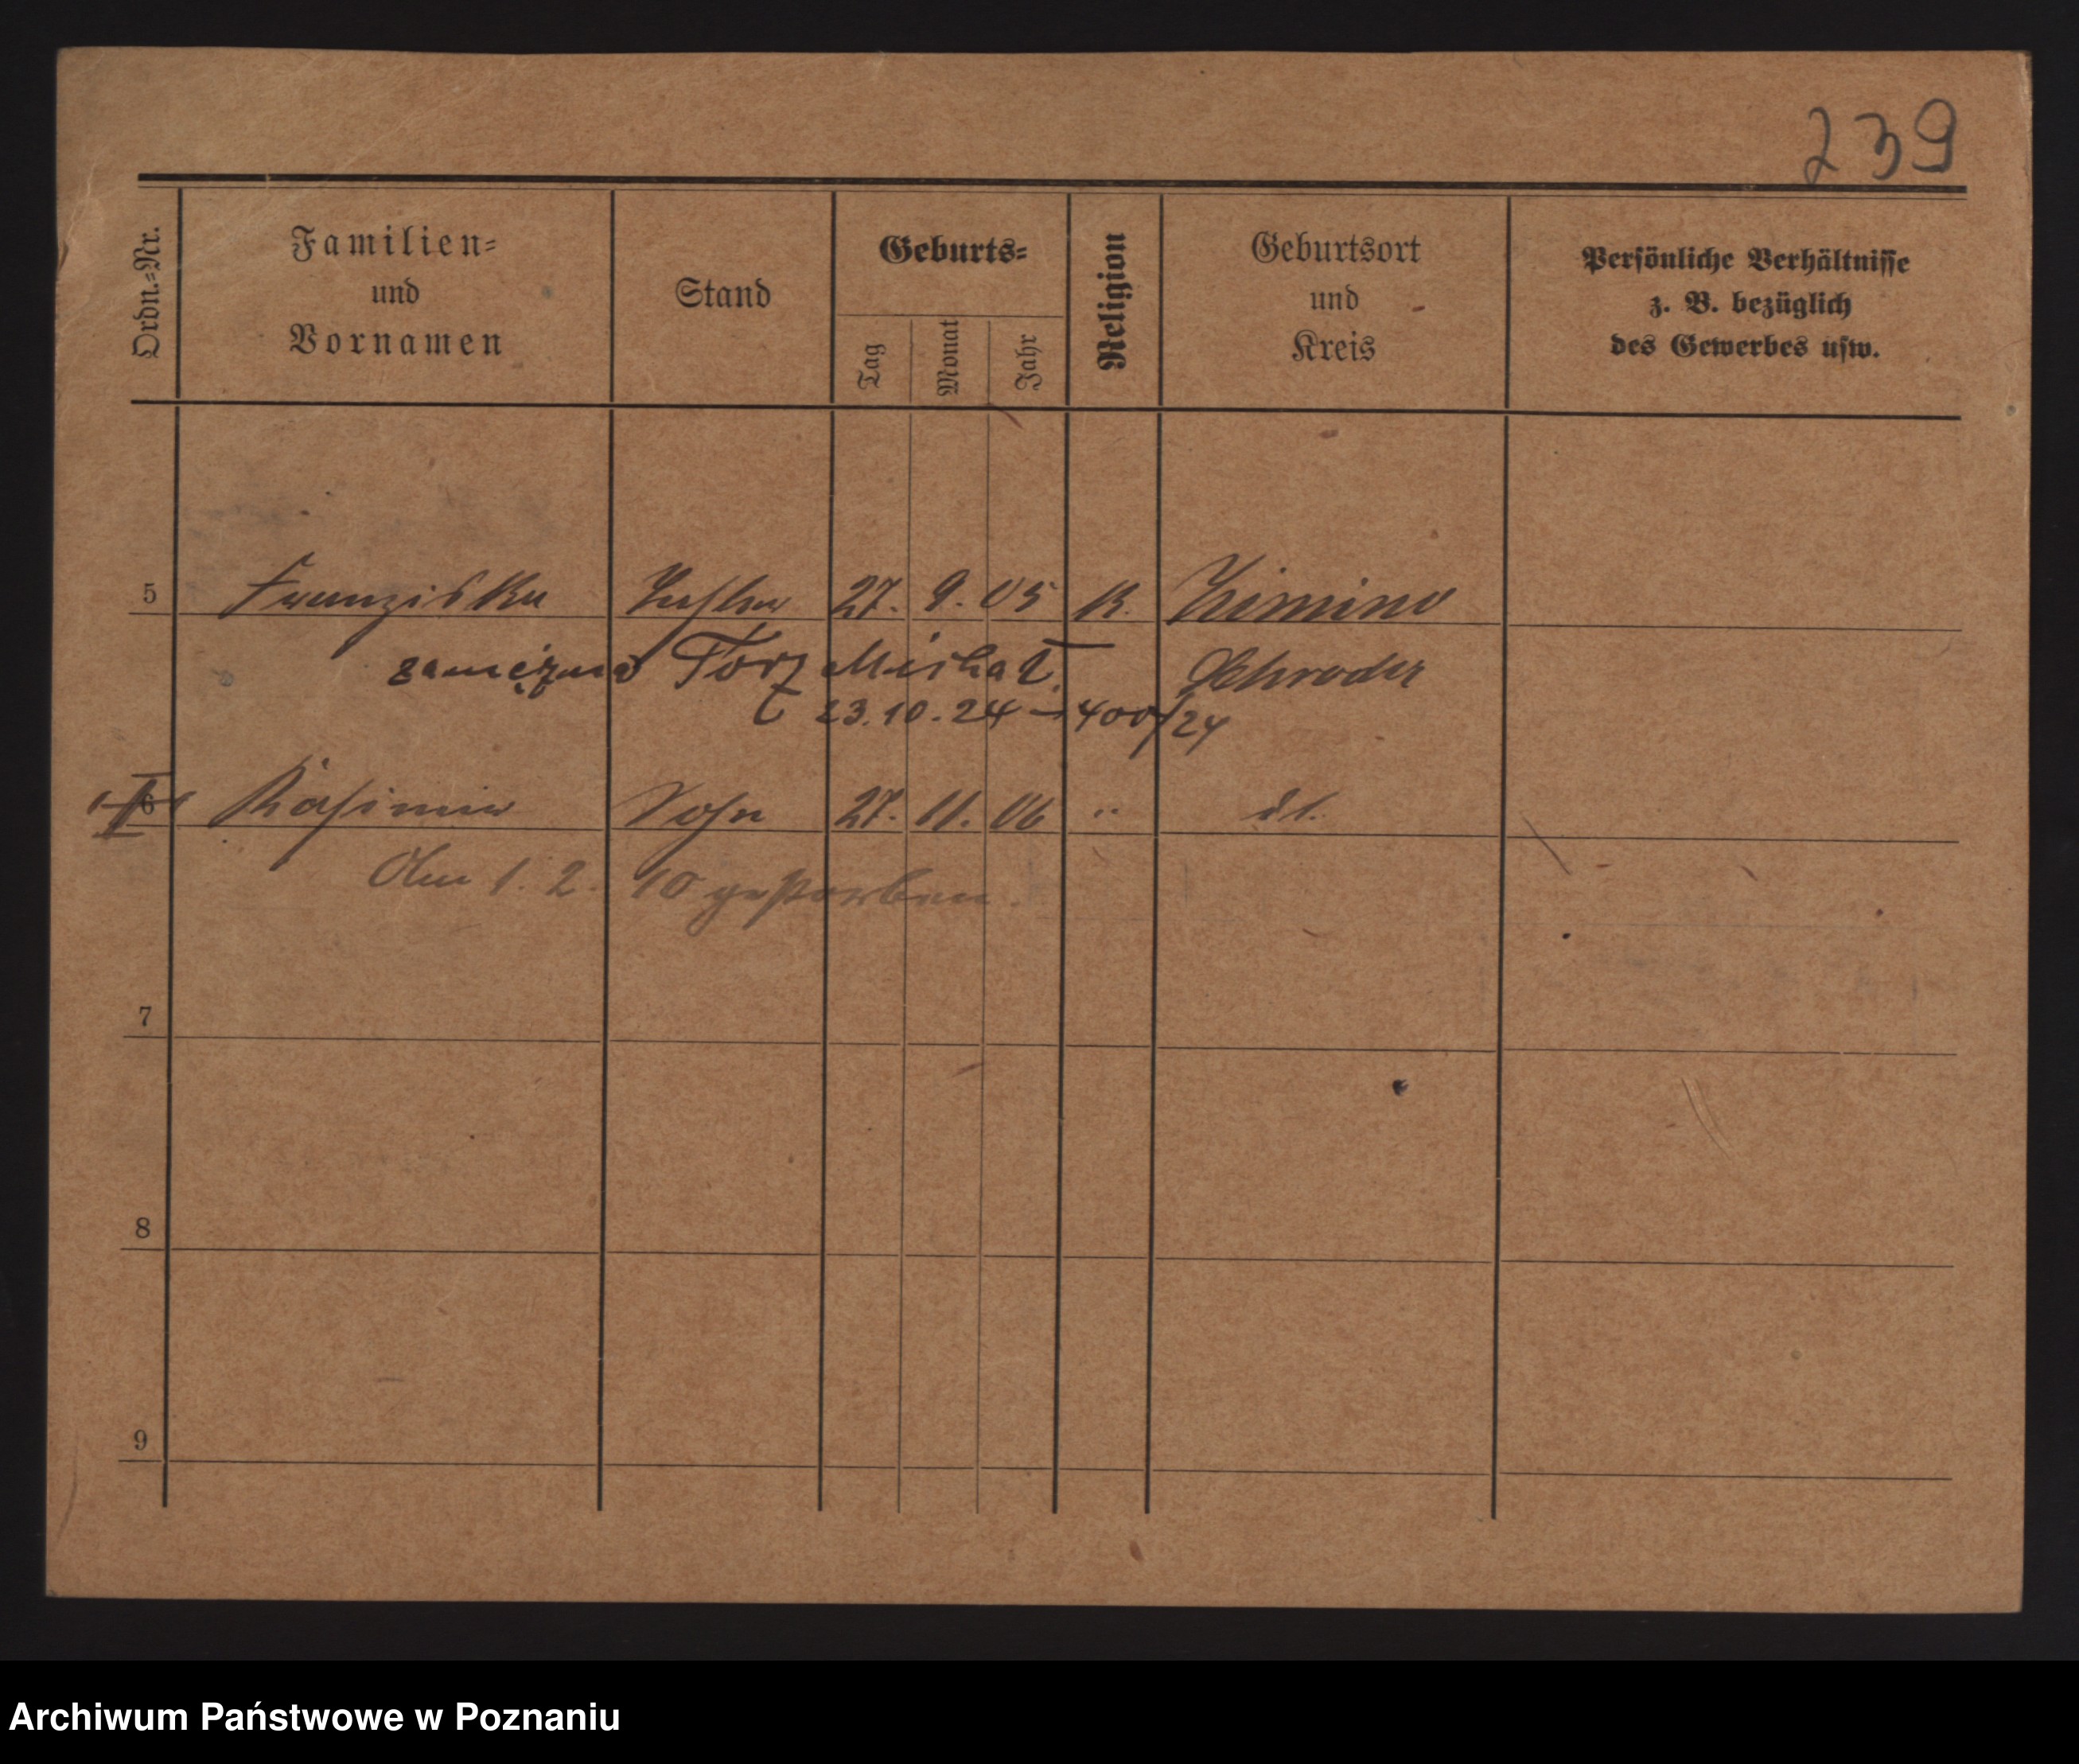 239
Ordn.-Nr.
Familien-
und
Vornamen
Stand
Geburts-
Tag
Monat
Jahr
Religion
Geburtsort
und
Kreis
Persönliche Verhältnisse
z. B. bezüglich
des Gewerbes usw.
5 Franziska Tochter 27. 9. 05 K. Zimino
zamężna Torz Michał Schroda
23.10.24 - 400/24
6 Kasimir Sohn 27. 11. 06 " dt.
Am 1. 2. 10 gestorben.
7
8
9
Archiwum Państwowe w Poznaniu